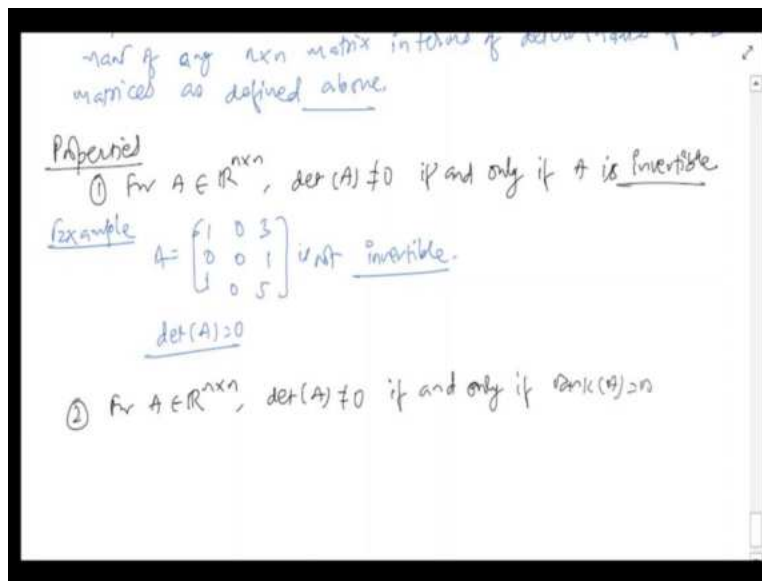 nant of any nxn matrix in terms of determinants of
matrices as defined above.
Properties
① For A ∈ ℝⁿˣⁿ, det(A) ≠ 0 if and only if A is invertible
Example
A = [1 0 3
0 0 1
1 0 5] is not invertible.
det(A)=0
② For A ∈ ℝⁿˣⁿ, det(A) ≠ 0 if and only if Rank(A)=n